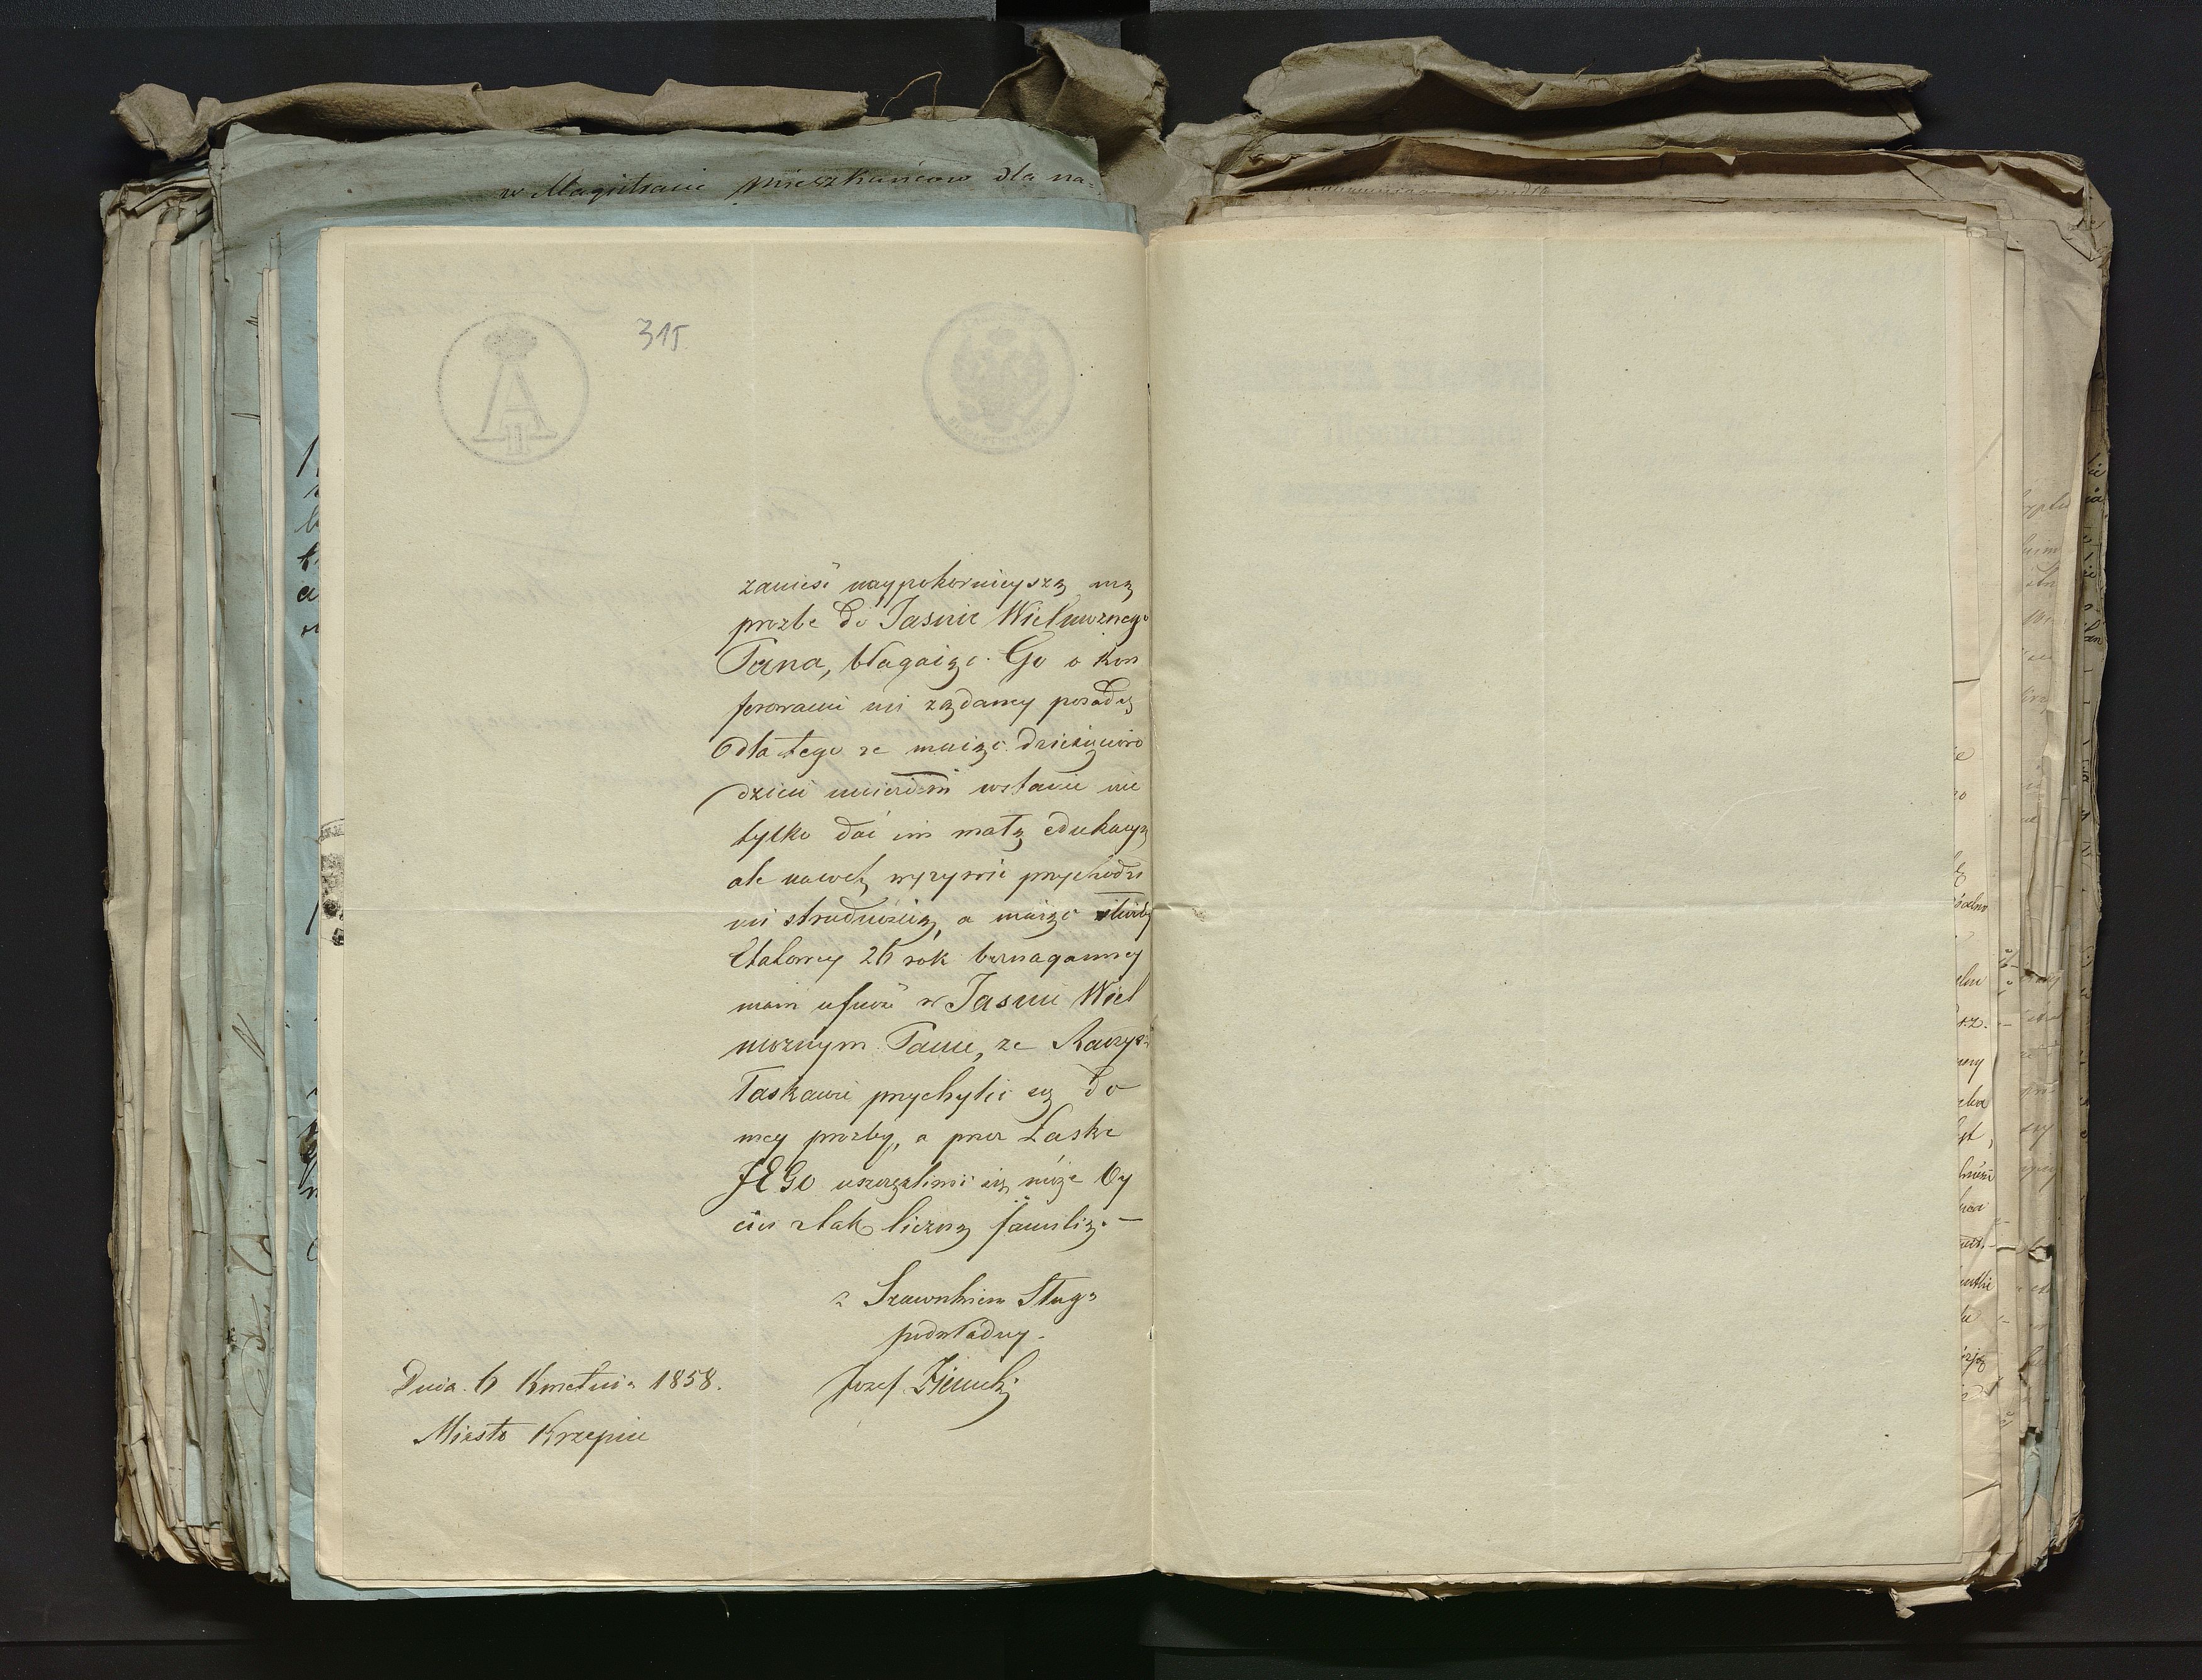 w Magistracie mieszkańców dla na=
315
zanieść naypokornieyszą mą
prozbe do Jasnie Wielmoznego
Pana, błagaiąc Go o kon
ferowanie mi ządaney posady
dla tego ze maiąc dziesięcioro
dzieci niejestem wstanie nie
tylko dać im małą edukacyą
ale nawet wyzywić przychodzi
mi z trudnością, a maiąc słuzby
Etatowey 26 rok nienaganney
mam ufność w Jasnie Wiel
moznym Panie, ze Raczysz
Łaskawie przychylić się do
mey prozby, a przez Łaske
JEGO uszczęśliwić się może by
cia z tak liczną familią. —
z Szacunkiem Sługa
podwładny.
Jozef
Dnia 6 Kwietnia 1858.
Miasto Krzepice